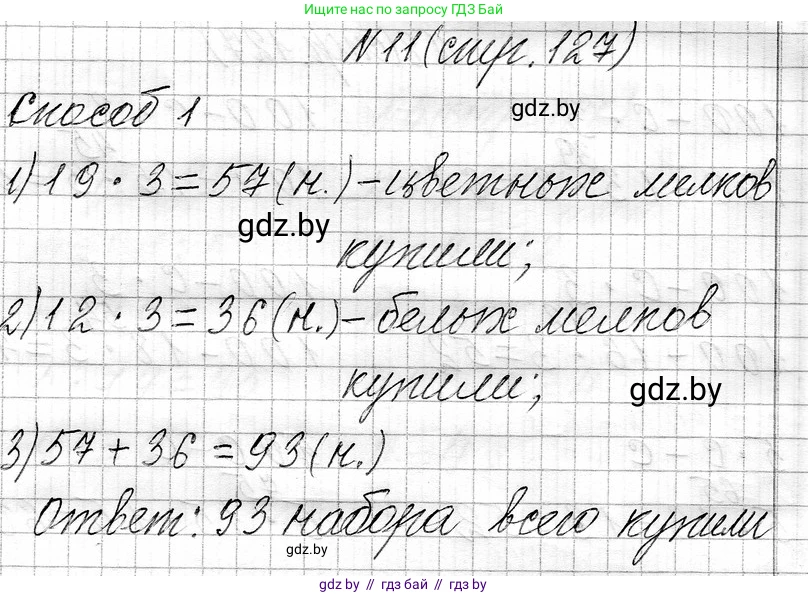 Ищите нас по запросу ГДЗ Бай
N 11 (стр. 127)
gdz.by
Способ 1
1) 19 · 3 = 57 (н.) - цветных мелков
gdz.by
купили;
2) 12 · 3 = 36 (н.) - белых мелков
купили;
gdz.by
3) 57 + 36 = 93 (н.)
Ответ: 93 набора всего купили
gdz.by
gdz.by // гдз бай // гдз by